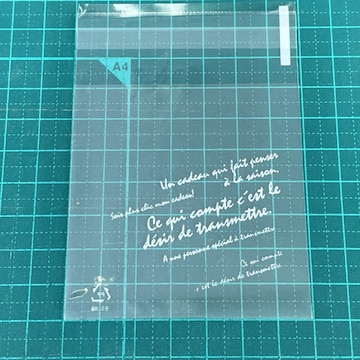 A4
Un cadeau qui fait penser
à la saison.
Sois plus chic mon cadeau!
Ce qui compte c'est le
désir de transmettre.
A une personne spécial à transmettre
Ce qui compte
c'est le désir de transmettre